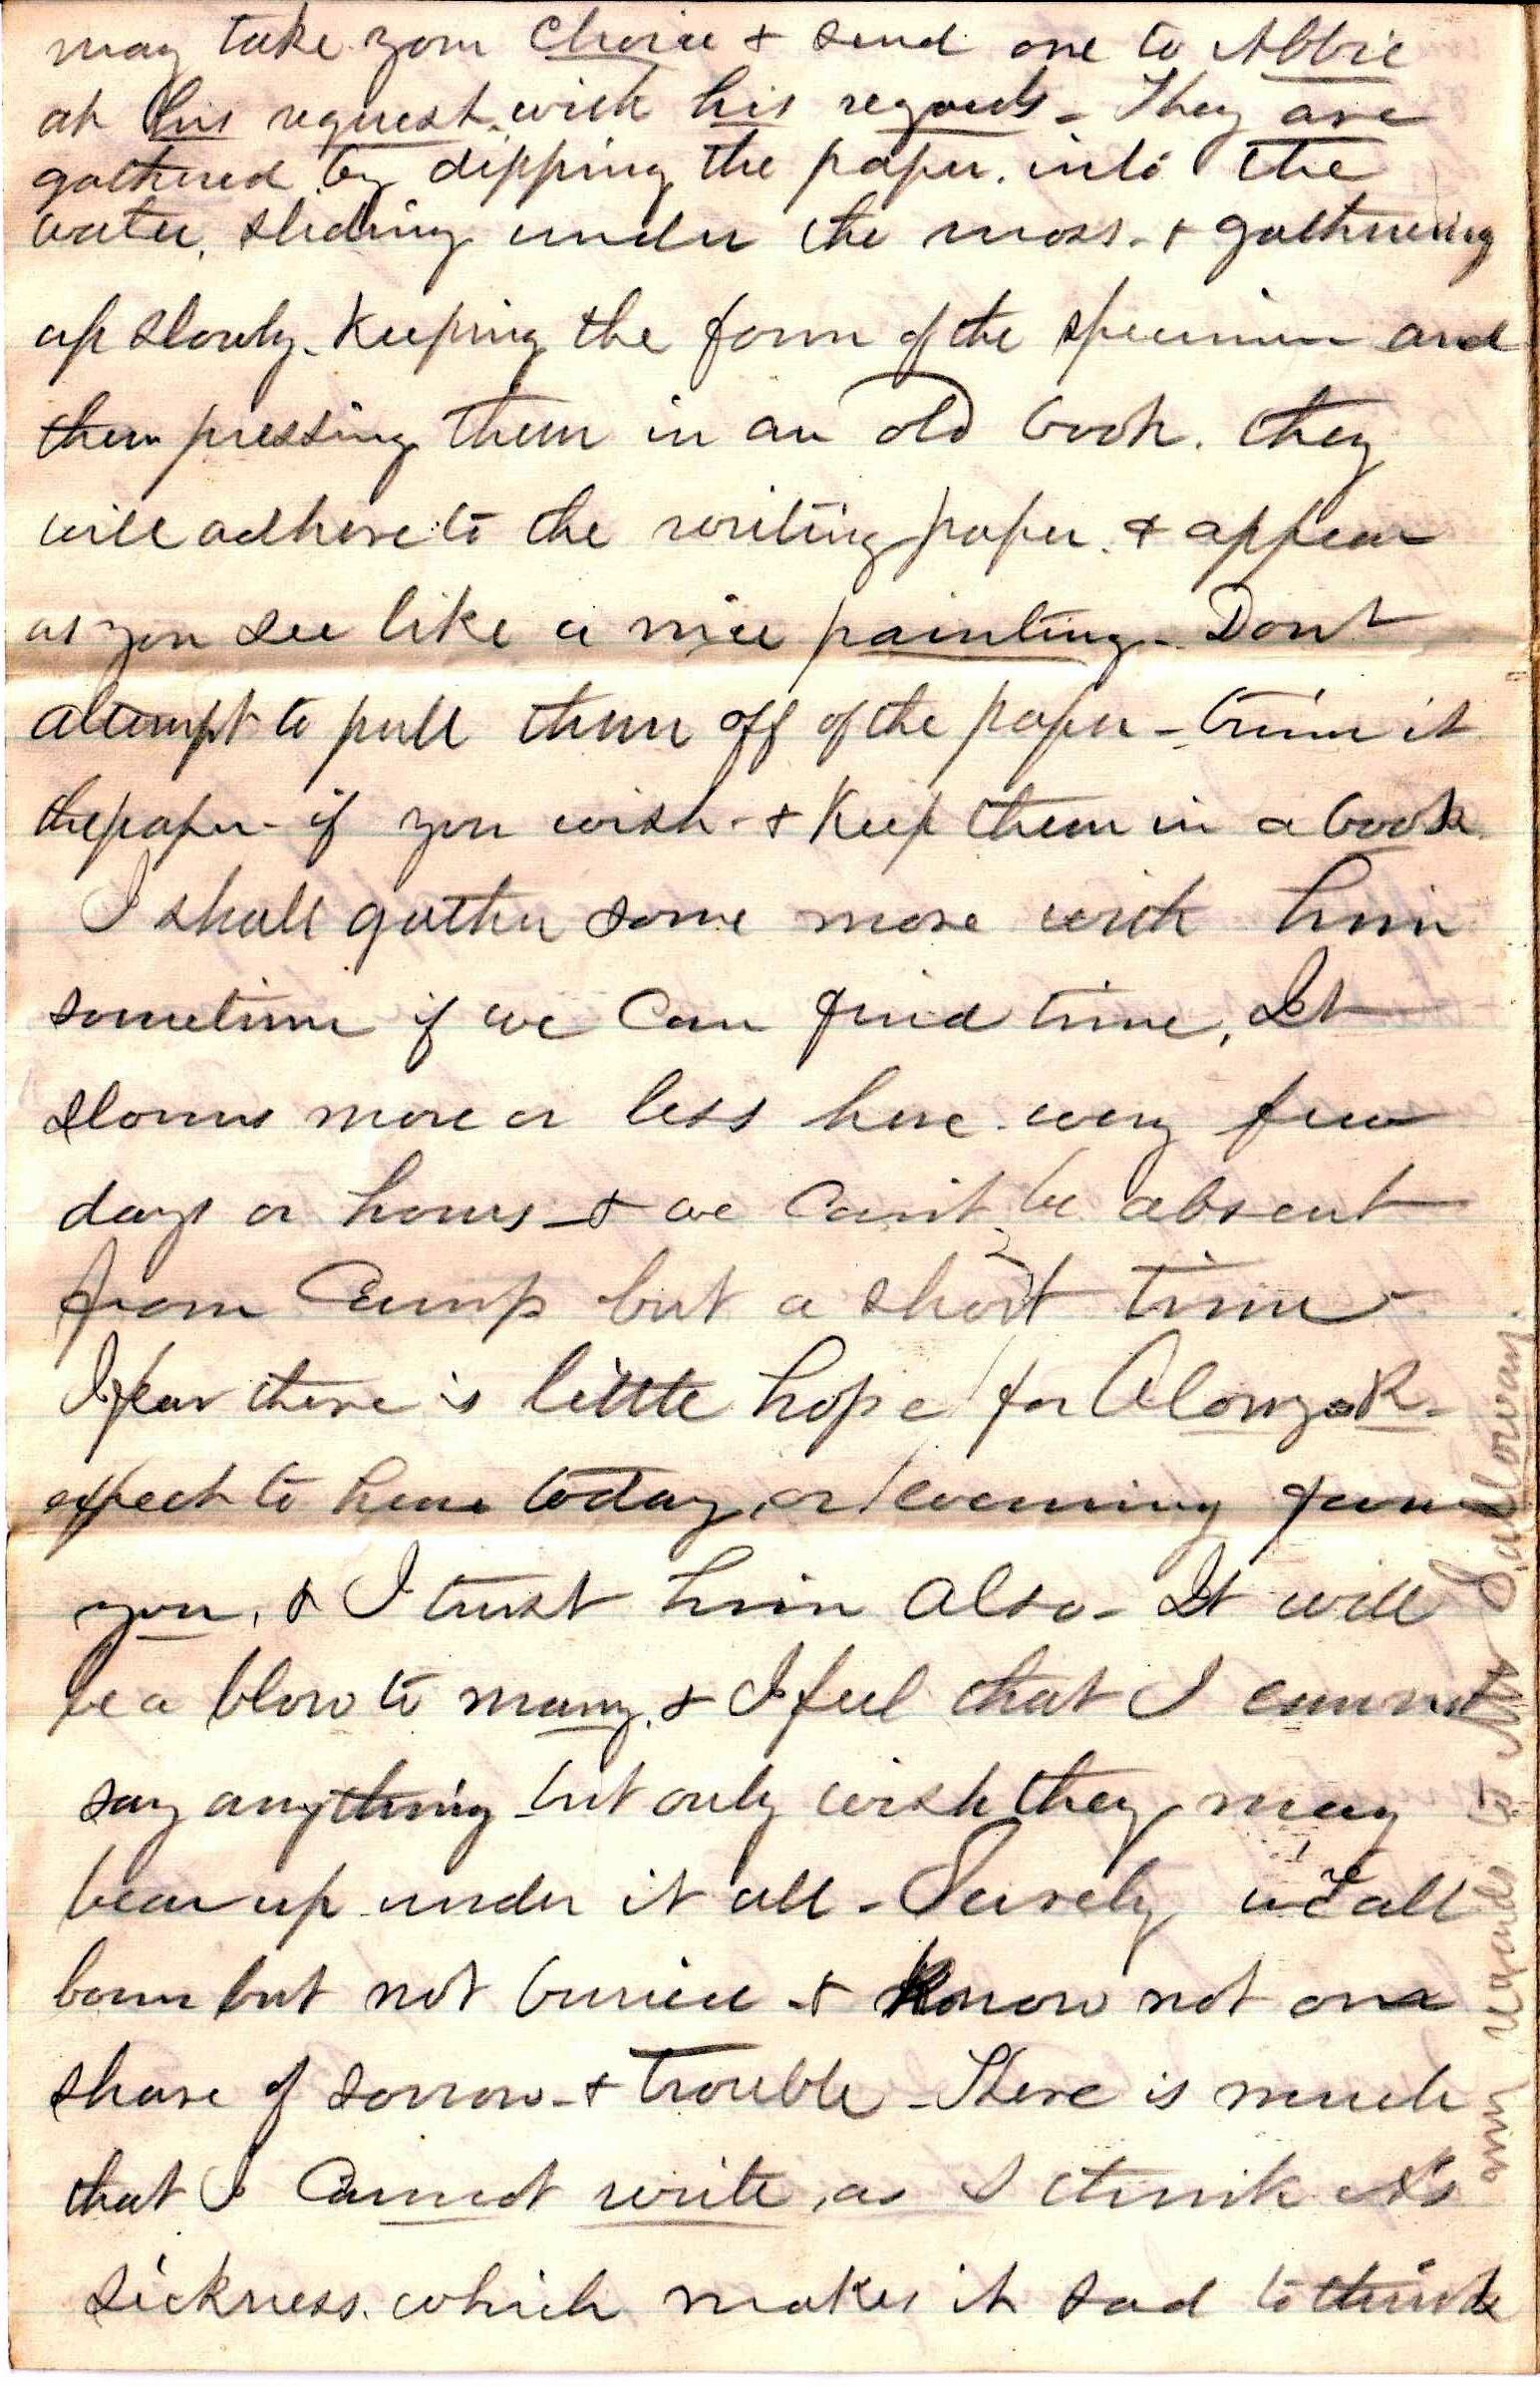 may take your choice & send one to Abbie
at his request with his regards - They are
gathered by dipping the paper into the
water, sliding under the moss - & gathering
up slowly - keeping the form of the specimen and
then pressing them in an old book. they
will adhere to the writing paper. & appear
as you see like a nice painting - Dont
attempt to pull them off of the paper - trim it
the paper - if you wish - & keep them in a book
I shall gather some more with him
sometime if we can find time. It
storms more or less here every few
days or hours - & we can't be absent
from camp but a short time -
I fear there is little hope for Alonzo R -
expect to hear today, or evening from
you, & I trust him also - It will
be a blow to many, & I feel that I cannot
say anything but only wish they may
bear up under it all - Surely we all
born but not buried & know not our
share of sorrow - & trouble - There is much
that I cannot write, as I think
sickness. which makes it sad to think
my regards to Mr Galloway.